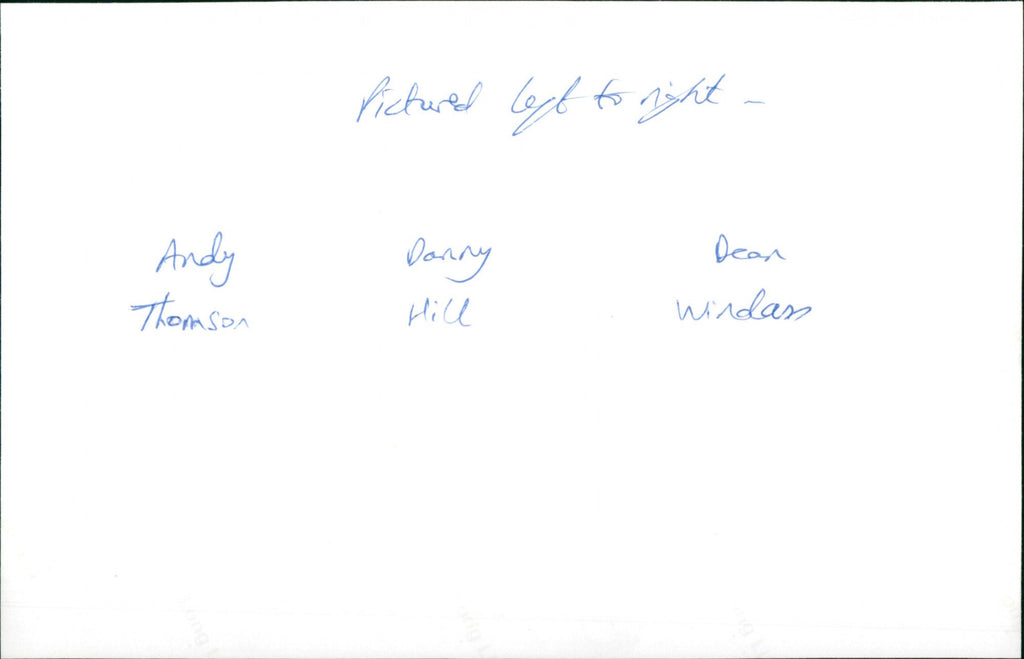 Pictured left to right -
Andy Danny Dean
Thomson Hill Windass